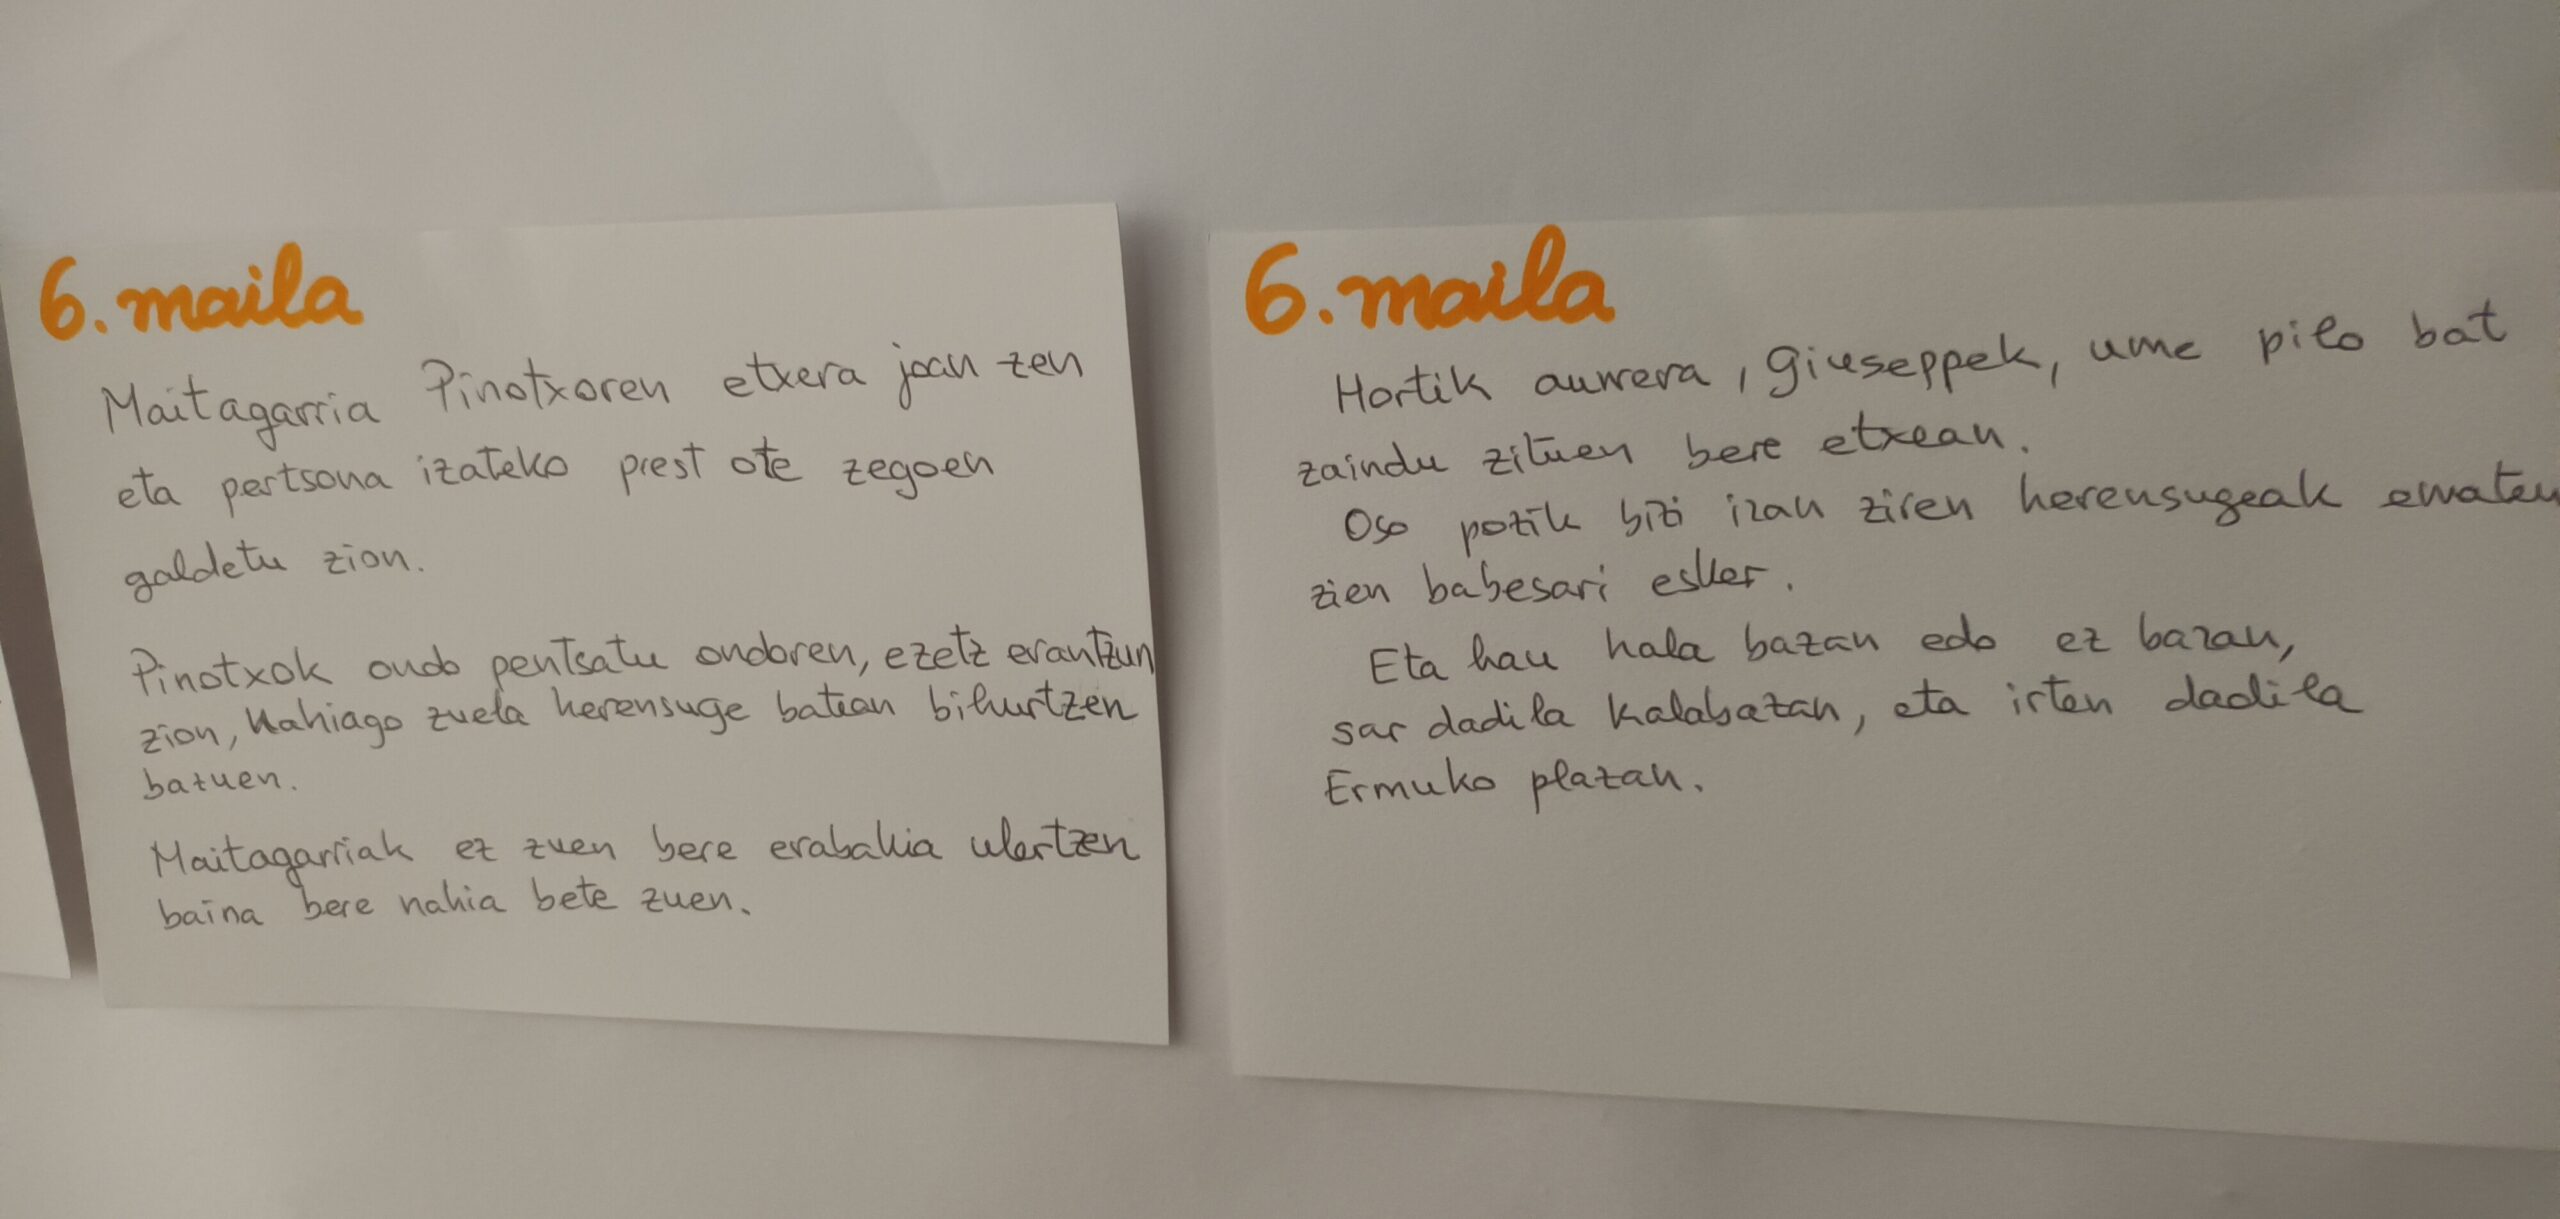 6. maila
Maitagarria Pinotxoren etxera joan zen
eta pertsona izateko prest ote zegoen
galdetu zion.
Pinotxok ondo pentsatu ondoren, ezetz erantzun
zion, Nahiago zuela herensuge batean bihurtzen
bazuen.
Maitagarriak ez zuen bere erabakia ulertzen
baina bere nahia bete zuen.
6. maila
Hortik aurrera, Giuseppek, ume pilo bat
zaindu zituen bere etxean.
Oso pozik bizi izan ziren herensugeak ematen
zien babesari esker.
Eta hau hala bazan edo ez bazan,
sar dadila kalabazan, eta irten dadila
Ermuko plazan.